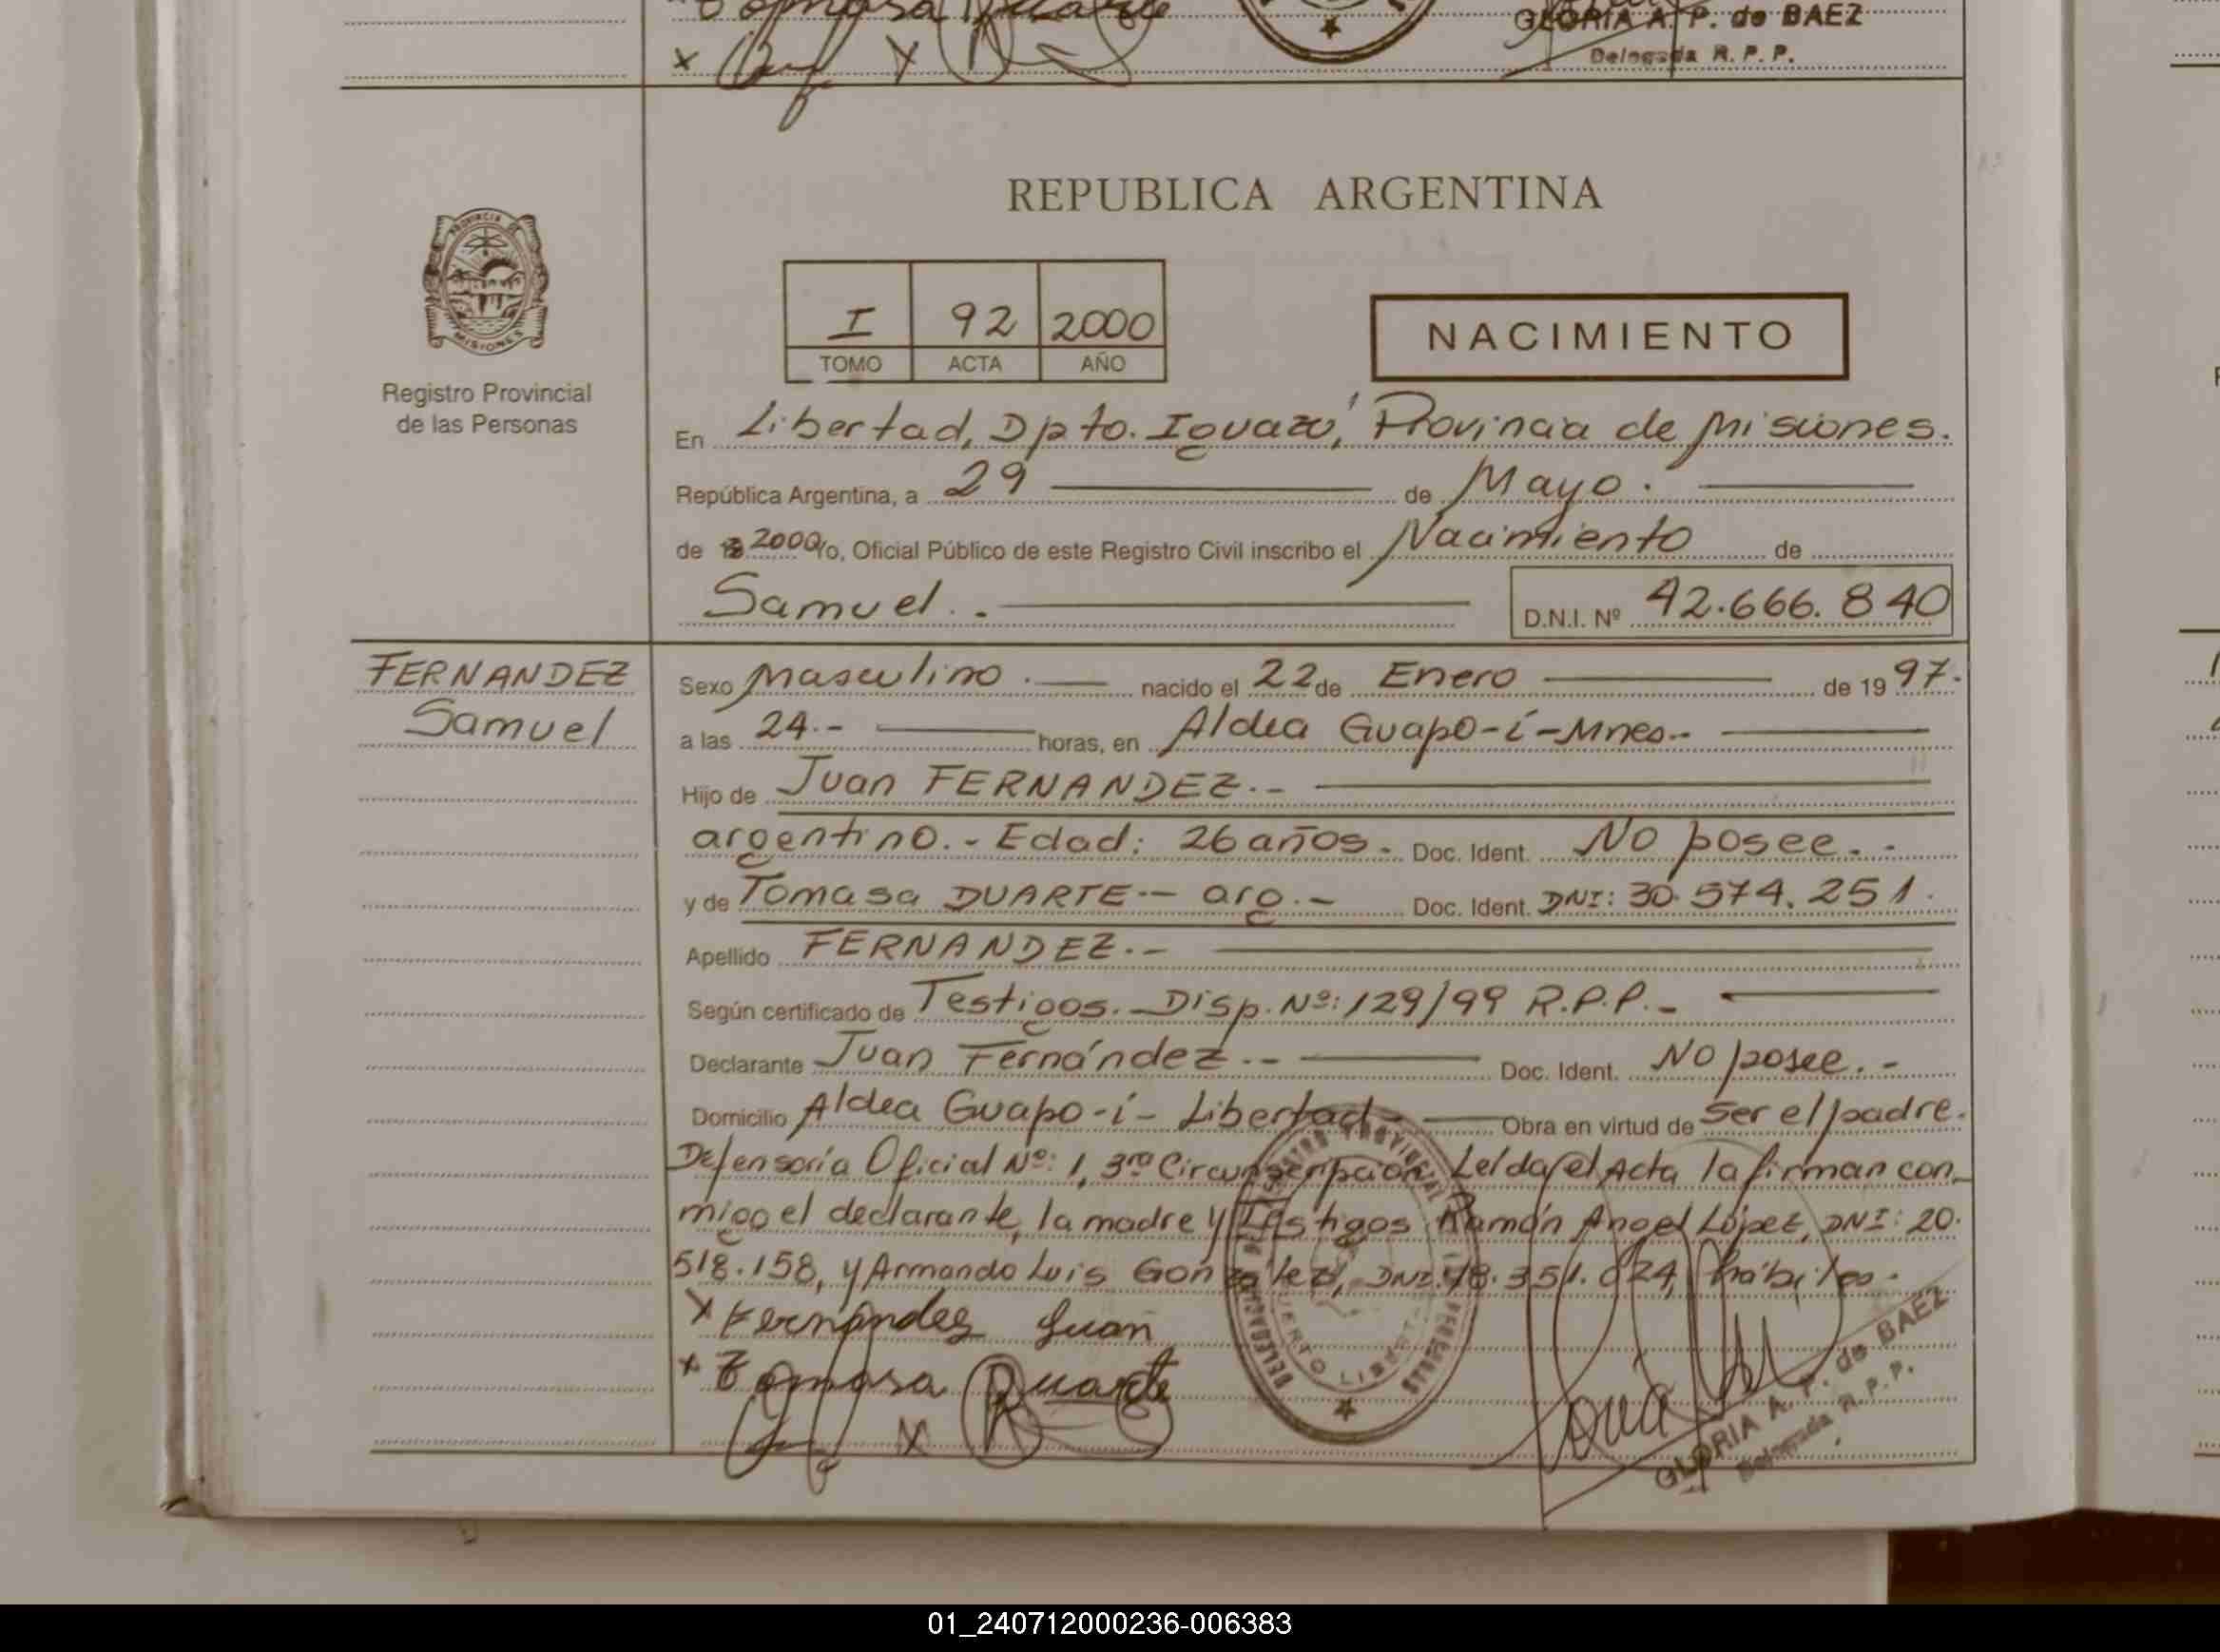 Tomasa Duarte
GLORIA A. P. de BAEZ
Delegada R. P. P.
REPUBLICA ARGENTINA
PROVINCIA DE
MISIONES
Registro Provincial
de las Personas
I 92 2000
TOMO ACTA AÑO
NACIMIENTO
En Libertad, Dpto. Iguazú, Provincia de Misiones.
República Argentina, a 29 de Mayo.
de 2000 Yo, Oficial Público de este Registro Civil inscribo el Nacimiento de
Samuel.- D.N.I. Nº 42.666.840
FERNANDEZ
Samuel
Sexo Masculino.- nacido el 22 de Enero de 1997.
a las 24.- horas, en Aldea Guapo-í-Mnes.-
Hijo de Juan FERNANDEZ.-
argentino.- Edad: 26 años.- Doc. Ident. No posee.-
y de Tomasa DUARTE.- arg.- Doc. Ident. DNI: 30.574.251.
Apellido FERNANDEZ.-
Según certificado de Testigos.- Disp. Nº: 129/99 R.P.P.-
Declarante Juan Fernández.- Doc. Ident. No posee.-
Domicilio Aldea Guapo-í- Libertad- Obra en virtud de ser el padre.
Defensoría Oficial Nº: 1, 3ra Circunscripción. Leída el Acta la firman con-
migo el declarante, la madre y Testigos Ramón Angel López, DNI: 20.
518.158, y Armando Luis González, DNI: 18.351.024, hábiles.-
x Fernández Juan
x Tomasa Duarte
PUERTO LIBERTAD
GLORIA A. P. de BAEZ
Delegada R. P. P.
01_240712000236-006383